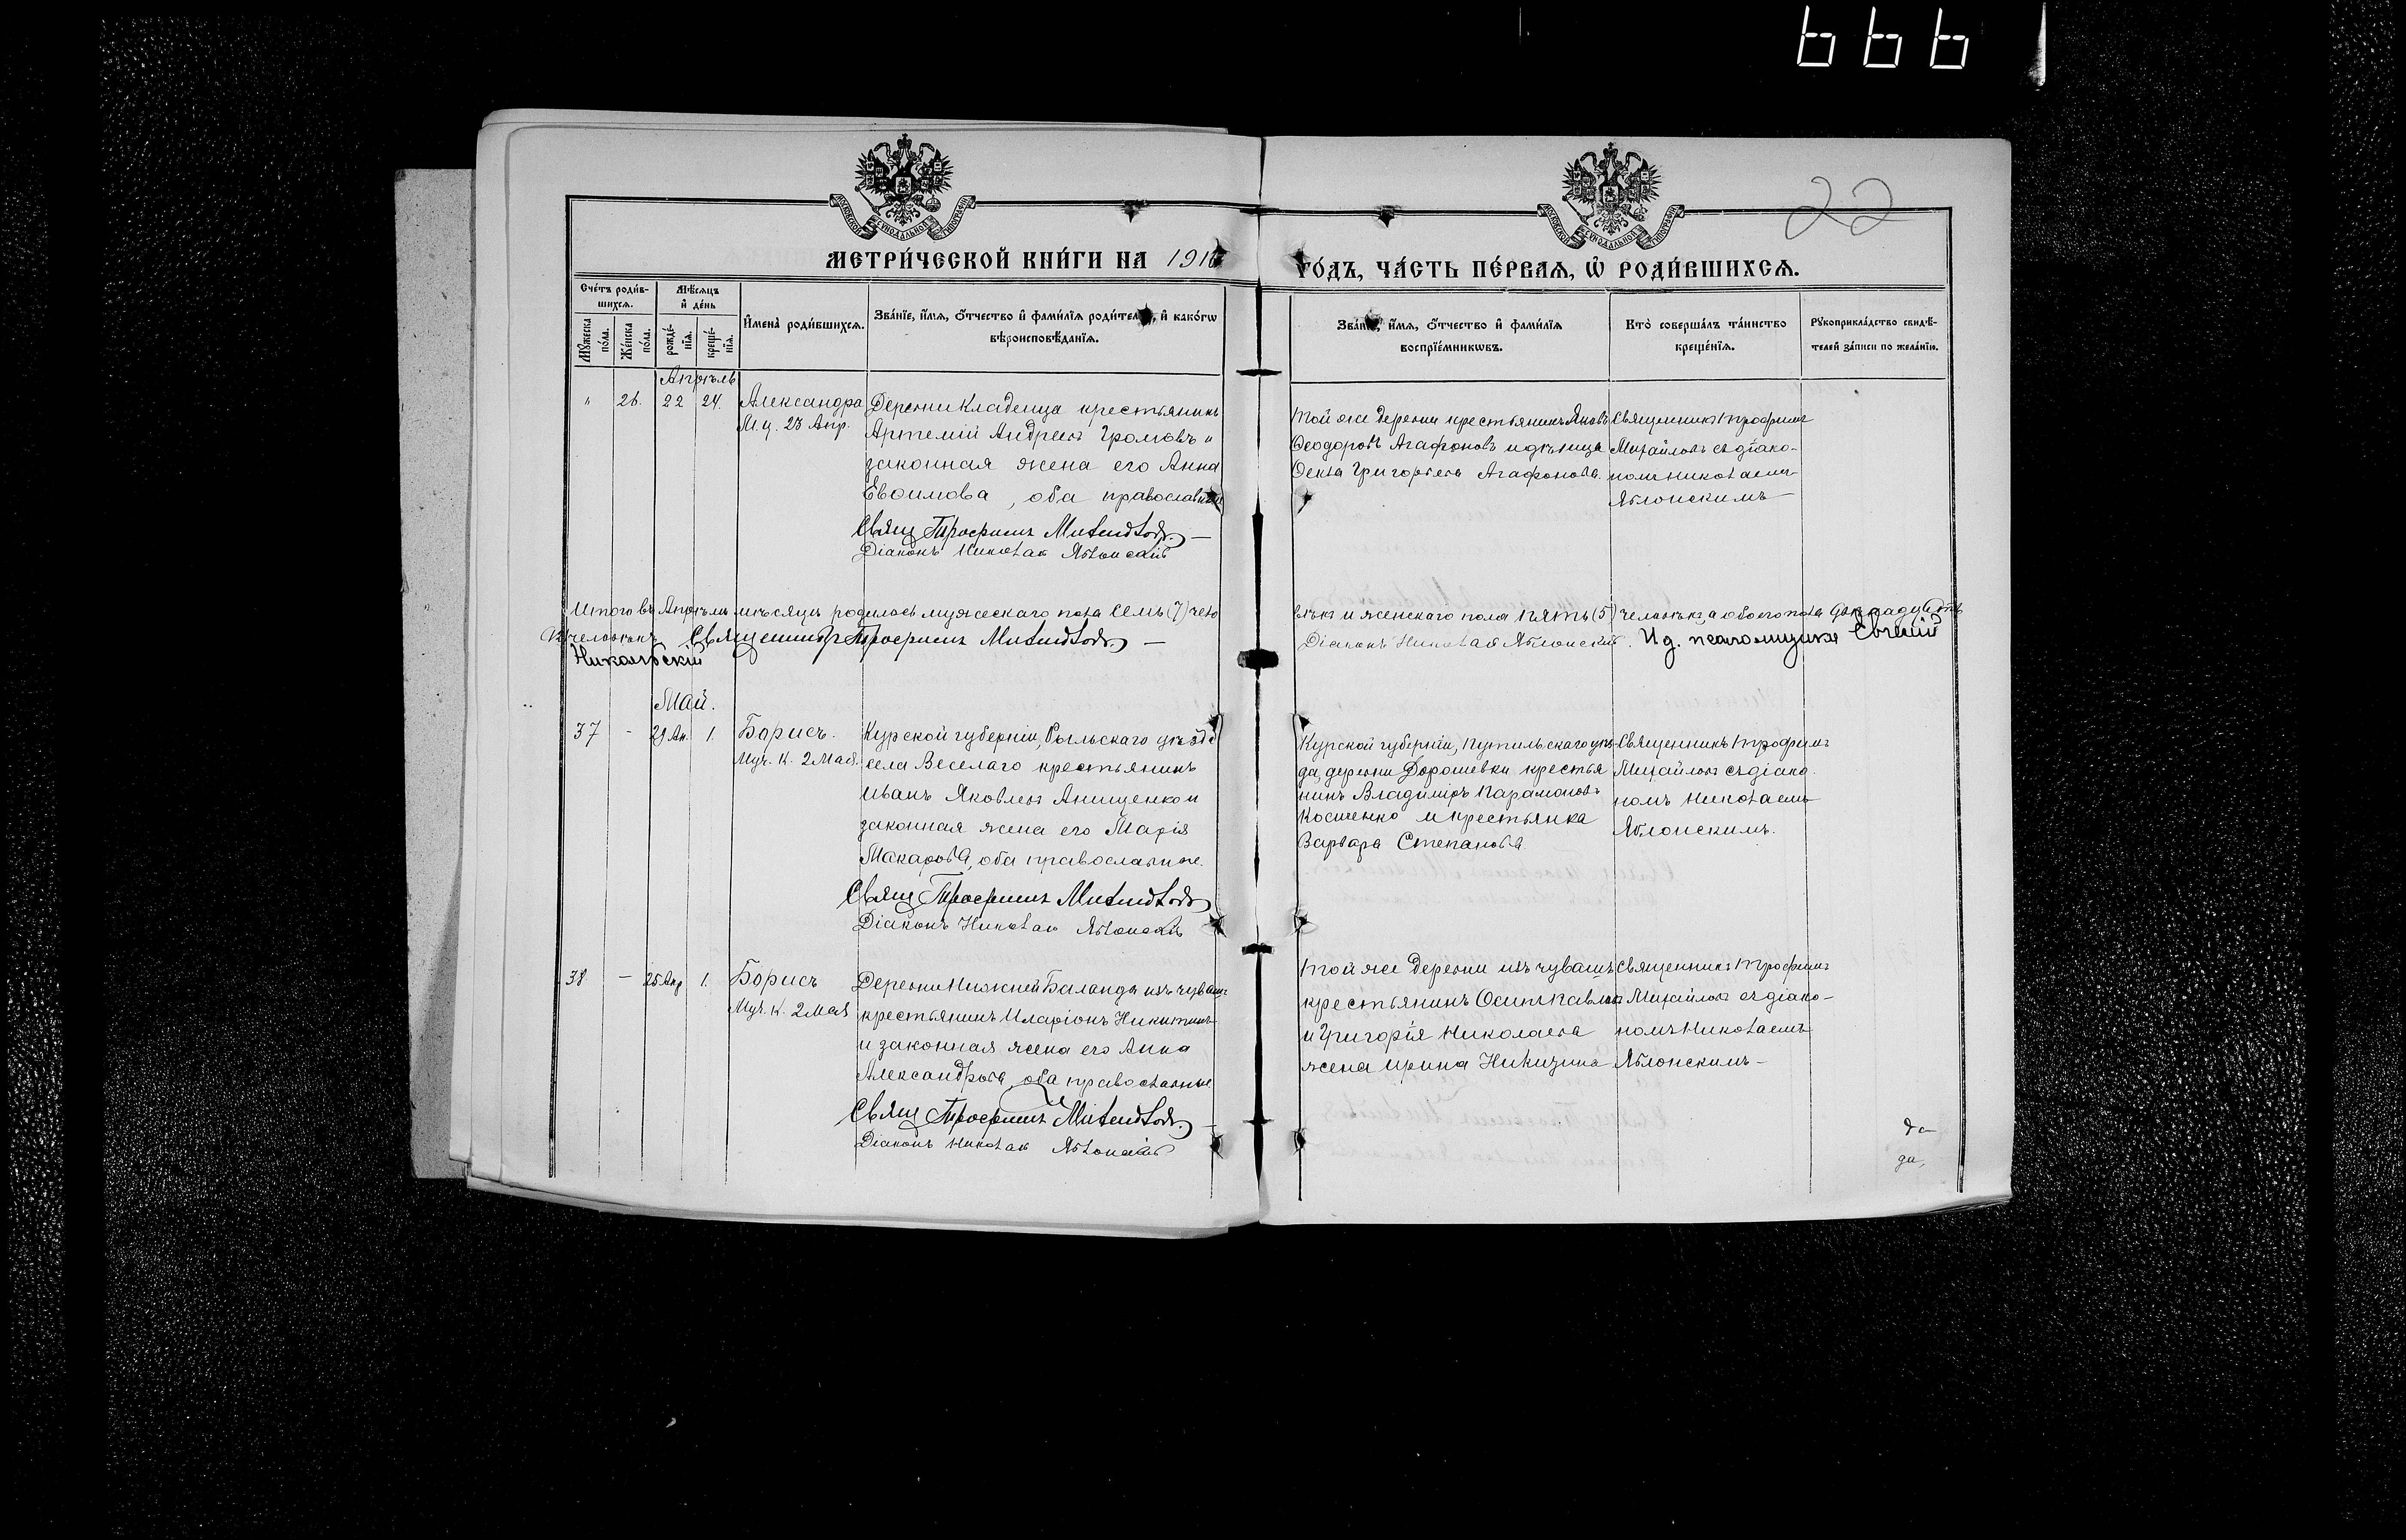 666
МОСКОВСКОЙ СУНОДАЛЬНОЙ ТИПОГРАФІИ
МОСКОВСКОЙ СУНОДАЛЬНОЙ ТИПОГРАФІИ
22
МЕТРИ́ЧЕСКОЙ КНИ́ГИ НА 191
ГО́ДЪ, ЧА́СТЬ ПЕ́РВАѦ, Ѿ РОДИ́ВШИХСѦ.
Сче́тъ роди́в-
шихсѧ.
Мѣ́сѧцъ
и҆ де́нь
Мꙋ́жеска
по́ла.
Же́нска
по́ла.
рожде́-
нїѧ.
креще́-
нїѧ.
И҆мена̀ роди́вшихсѧ.
Зва́нїе, и҆́мѧ, ѻ҆́тчество и҆ фами́лїѧ роди́телей, и҆ како́гѡ
вѣроисповѣ́данїѧ.
Зва́нїе, и҆́мѧ, ѻ҆́тчество и҆ фами́лїѧ
воспрїе́мникѡвъ.
Кто̀ соверша́лъ та́инство
креще́нїѧ.
Рꙋкоприкла́дство свидѣ́-
телей за́писи по жела́нїю.
Апрѣль
" 26. 22 24.
Александра
М.ц. 23 Апр.
Деревни Кладенца крестьянинъ
Артемій Андреевъ Громовъ и
законная жена его Анна
Евѳимова, оба православные
Свящ Трофимъ Михайловъ. —
Діаконъ Николай Яблонскій
Той же деревни крестьянинъ Яковъ
Ѳеодоровъ Агафоновъ и дѣвица
Ѳекла Григорьева Агафонова.
Священникъ Трофимъ
Михайловъ съ діако-
номъ Николаемъ
Яблонскимъ
Итого въ Апрѣлѣ мѣсяцѣ родилось мужескаго пола семь (7) чело
вѣкъ и женскаго пола пять (5) человѣкъ, а обоего пола двѣнадцать
12 человѣкъ Священникъ Трофимъ Михайловъ. —
Діаконъ Николай Яблонскій. И.д. псаломщика Евгеній
Никольскій
Май.
37 - 29 Ап. 1.
Борисъ.
Муч. К. 2 Мая.
Курской губерніи, Рыльскаго уѣзда
села Веселаго крестьянинъ
Иванъ Яковлевъ Анищенко и
законная жена его Марія
Макарова, оба православные.
Свящ Трофимъ Михайловъ
Діаконъ Николай Яблонскій
Курской губерніи, Путивльскаго уѣз-
да, деревни Дорошевки крестья
нинъ Владиміръ Парамоновъ
Косиченко и крестьянка
Варвара Степанова
Священникъ Трофимъ
Михайловъ съ діако
номъ Николаемъ
Яблонскимъ.
38 — 25 Апр 1.
Борисъ
Муч. К. 2 Мая
Деревни Нижней Баланды изъ чувашъ
крестьянинъ Иларіонъ Никитинъ
и законная жена его Анна
Александрова, оба православные
Свящ Трофимъ Михайловъ.
Діаконъ Николай Яблонскій
Той же деревни изъ чувашъ
крестьянинъ Осипъ Павловъ
и Григорія Николаева
жена Ирина
Священникъ Трофимъ
Михайловъ съ діако-
номъ Николаемъ
Яблонскимъ —
да,